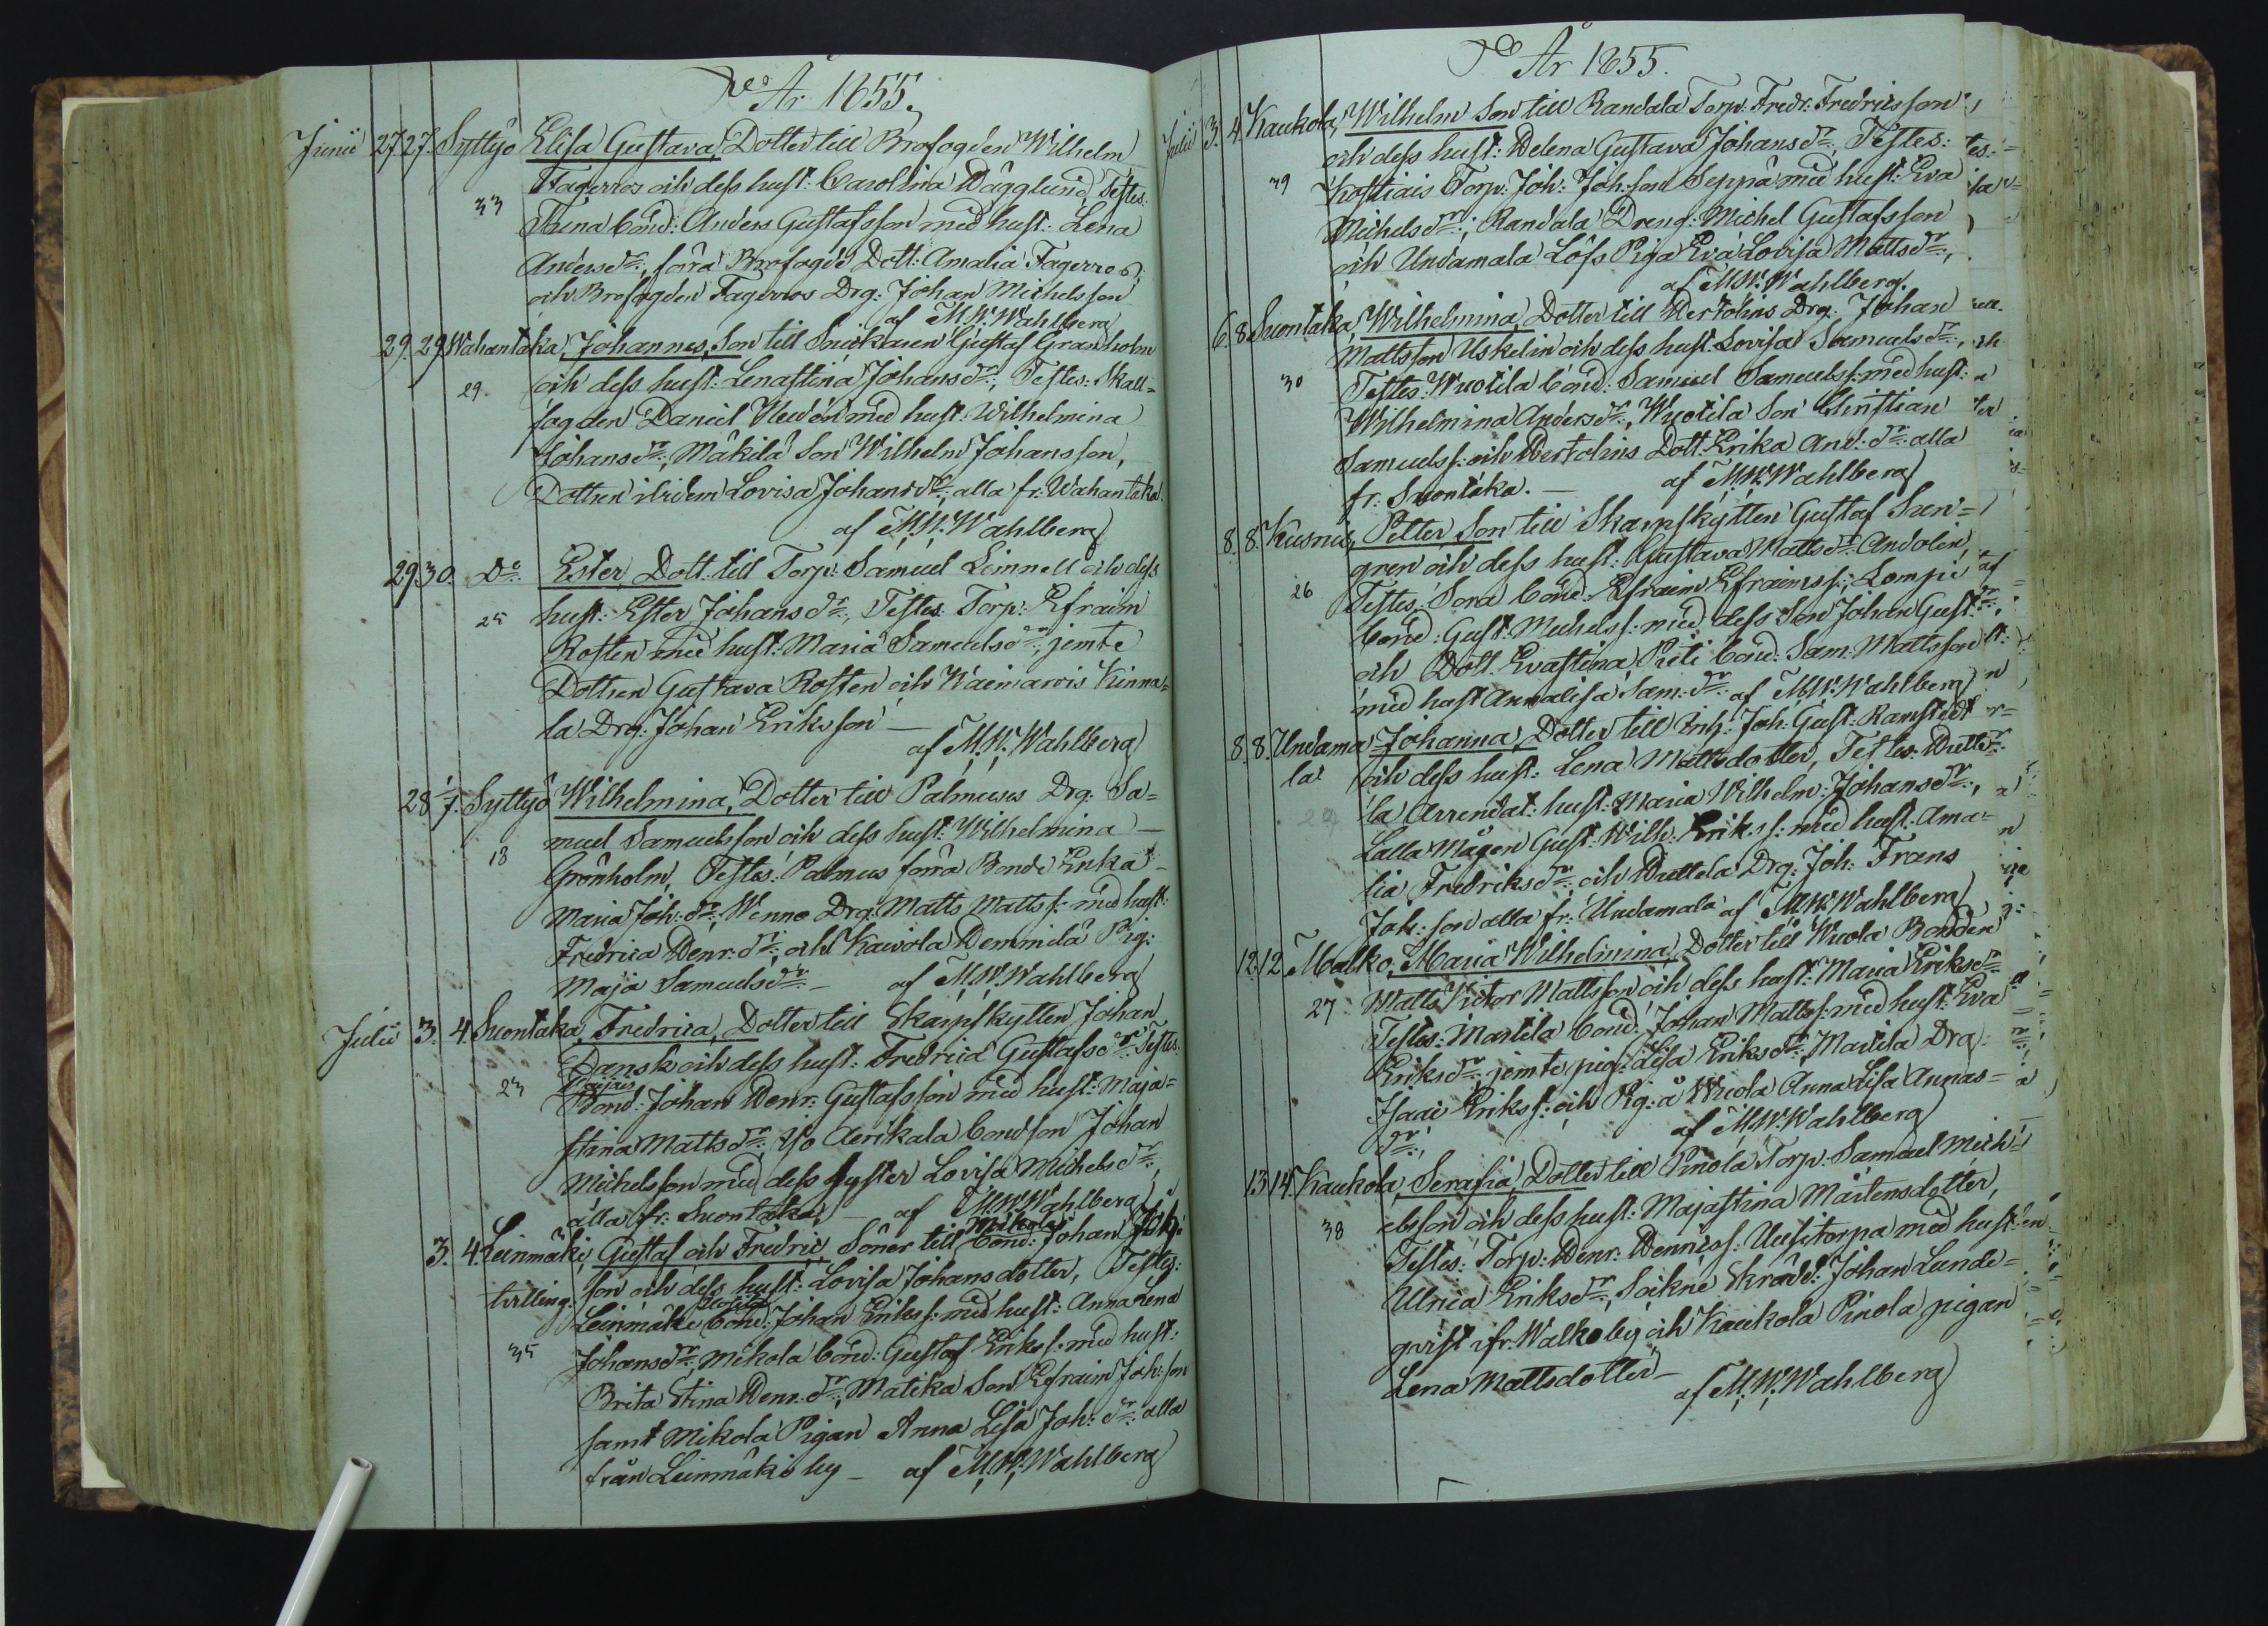 År 1855.
Junii 27. 27. Syttyö Elisa Gustava, Dotter till Brofogden Wilhelm
Fagerroos och dess hust: Carolina Hägglund, Testes:
33 Tuna bond: Anders Gustafsson med hust: Lena
Andersdr:, förra Brofogde Dott: Amalia Fagerros,
och Brofogden Fagerros Drg: Johan Michelsson
af M.W. Wahlberg
29. 29. Wahantaka, Johannes, Son till Snickaren Gustaf Granholm
29. och dess hust: Lenastina Johansdr:, Testes: Skall=
fogden Daniel med hust: Wilhelmina
Johansdr:, Mäkilä Son Wilhelm Johansson,
Dottren ibidem Lovisa Johansdr: alla fr: Wahantaka.
af M.W. Wahlberg
29. 30. Do: Ester, Dott: till Torp: Samuel Limnell och dess
25 hust: Ester Johansdr:, Testes: Torp: Efraim
Rosten med hust: Maria Samuelsdr:, jemte
Dottren Gustava Rosten och Kinna=
la Drg: Johan Eriksson –
af M.W. Wahlberg
28 1/7. Syttyö Wilhelmina, Dotter till Palmus Drg: Sa=
muel Samuelsson och dess hust: Wilhelmina –
18 Grönholm, Testes: Palmus förra Bonde Enka
Maria Joh:dr:, Wenno Drg: Matts Mattss: med hust:
Fredrica Henr:dr:, och Kaivola Hemmilä Pig:
Maja Samuelsdr: – af M.W. Wahlberg
Julii 3. 4. Suontaka, Fredrica, Dotter till Skarpskytten Johan
Dansk och dess hust: Fredrica Gustafsdr: Testes:
23 Bond: Johan Henr: Gustafsson med hust: Maja=
stina Mattsdr:, Yo Aerikala bondson Johan
Michelsson med dess syster Lovisa Michelsdr:,
alla fr: Suontaka, – af M.W. Wahlberg
3. 4. Leinmäki, Gustaf och Fredric, Söner till Mikola bond: Johan
tvilling: son och dess hust: Lovisa Johansdotter, Testes:
Leinmäki bond: Johan Erikss: med hust: Annalena
35 Johansdr:, Mikola bond: Gustaf Erikss: med hust:
Brita Stina Henr:dr:, Matika Son Efraim Joh:son
samt Mikola Pigan Anna Lisa Joh:dr: alla
från Leinmäki by – af M.W. Wahlberg
År 1855.
Julii 3. 4. Kaukola, Wilhelm Son till Randala Torp: Fredr: Fredricsson
och dess hust: Helena Gustava Johansdr:, Testes:
39 Kostiais Torp: Joh: Joh:son Seppä med hust: Eva
Michelsdr:, Randala Dreng: Michel Gustafsson
och Undamala Lösa Piga Eva Lovisa Mattsdr:,
af M.W. Wahlberg.
6. 8. Suontaka, Wilhelmina, Dotter till Hertolins Drg: Johan
Mattsson Uskelin och dess hust: Lovisa Samuelsdr:,
30 Testes: Wuotila bond: Samuel Samuelss: med hust:
Wilhelmina Andersdr:, Wuotila Son Christian
Samuelss: och Hertolins Dott: Erika And:dr: alla
fr: Suontaka. – af M.W. Wahlberg
8. 8. Kusnis, Petter Son till Skarpskytten Gustaf Sun=
gren och dess hust: Gustava Mattsdr: Andolin,
26 Testes: Sora bond: Efraim Efraimss:, Lompi
bond: Gust: Michelss: med dess Son Johan Gust:
och Dott: Evastina, Priti bond: Sam: Mattsson
med hust Annalisa Sam:dr: af M.W. Wahlberg
8. 8. Undama= Johanna, Dotter till Inh: Joh: Gust: Ramstedt
la och dess hust: Lena Mattsdotter, Testes: Hutte=
29 la Arrendat: hust: Maria Wilhelm: Johansdr:,
Lalla Mågen Gust: Wilh: Erikss: med hust: Ama=
lia Fredriksdr: och Huttela Drg: Joh: Frans
Joh:son alla fr: Undamala af M.W. Wahlberg
12. 12. Malko, Maria Wilhelmina, Dotter till Wuola Bonden
27 Matts Victor Mattsson och dess hust: Maria Eriksdr:
Testes: Martila bond: Johan Mattss: med hust: Eva
Eriksdr:, jemte pig: Lisa Eriksdr:, Martila Drg:
Isaac Erikss: och Pig: å Wuola Anna Lisa Annas=
dr:, af M.W. Wahlberg
13. 14. Kaukola, Serafia, Dotter till Pinola Torp: Samuel Mich=
38 elsson och dess hust: Majastina Mårtensdotter,
Testes: Torp: Henr: Henricss: Uusitorpa med hust:
Ulrica Eriksdr:, Sockne Skrädd: Johan Lunde=
qvist ifr: Walko by och Kaukola Pinola pigan
Lena Mattsdotter –
af M.W. Wahlberg